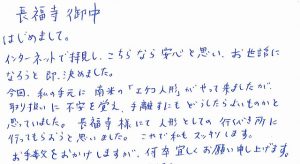 長福寺 御中
はじめまして。
インターネットで拝見し、こちらなら安心と思い、お世話に
なろうと即、決めました。
今回、私の手元に南米の「エケコ人形」がやって来ましたが、
取り扱いに不安を覚え、手離すにもどうしたらよいものかと
思っていました。長福寺様にて人形としての行くべき所に
行ってもらおうと思いました。これで私もスッキリします。
お手数をおかけしますが、何卒宜しくお願い申し上げます。